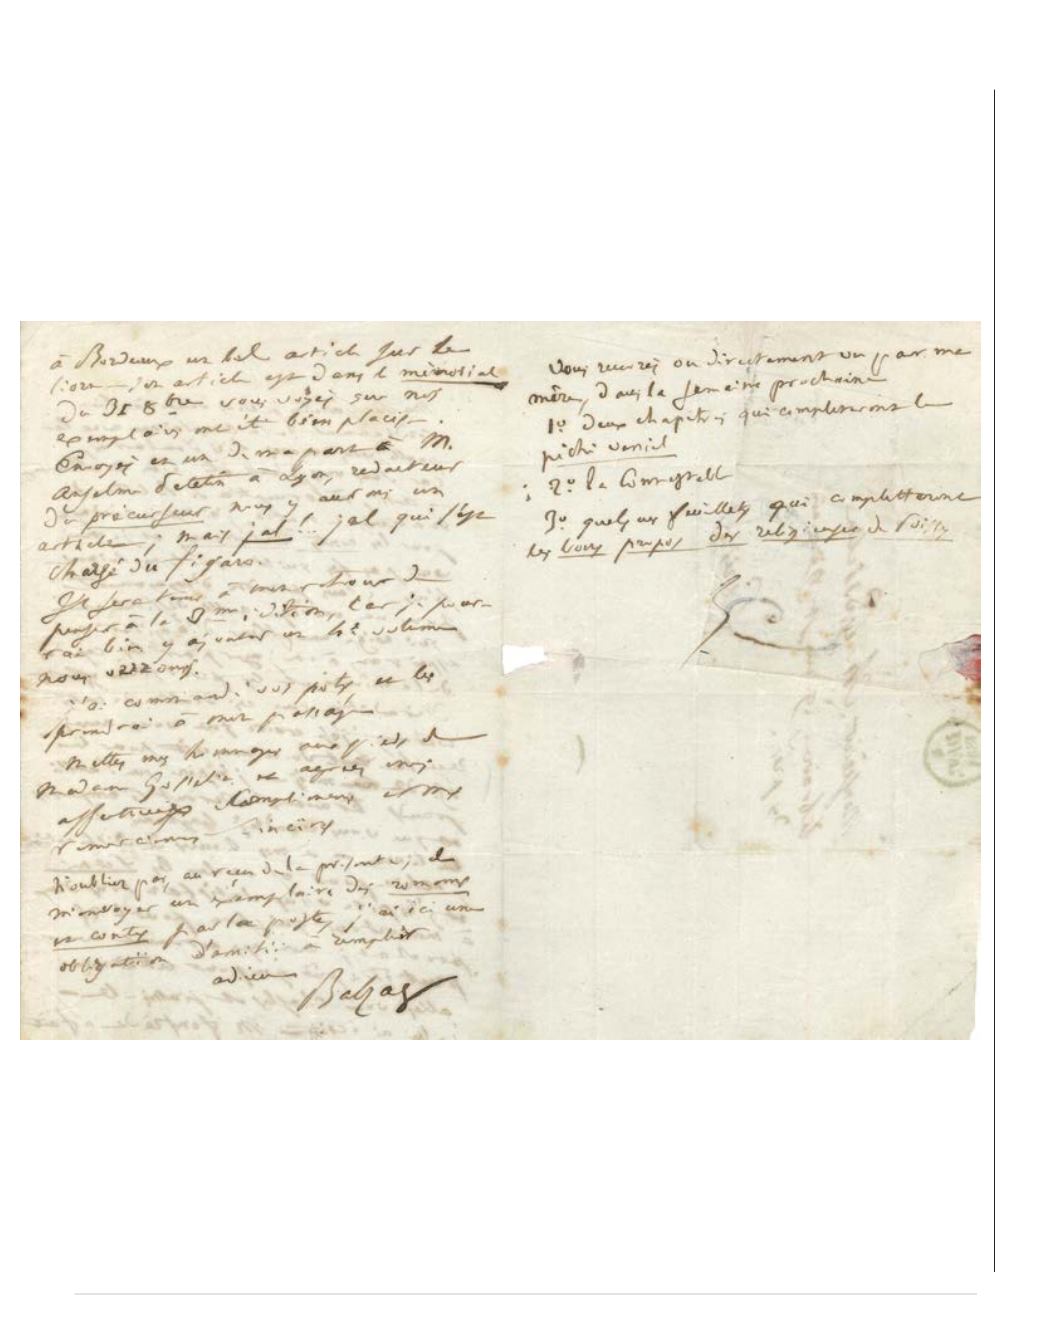 à Bordeaux un bel article sur le
livre — son article est dans le mémorial
du 31 8bre vous voyez que nos
exemplaires ont été bien placés.
Envoyez en un de ma part à M.
Anselme Petetin à Lyon, rédacteur
du précurseur nous y aurons un
article ; mais jal !.. jal qui s'est
chargé du figaro.
Il sera tems à mon retour de
penser à la 3me édition, car je pour-
rai bien y ajouter un 4e volume
nous verrons.
j'ai commandé vos pots, et les
prendrai à mon passage
Mettez mes hommages aux pieds de
Madame Gosselin, et agréez mes
affectueux compliments et mes
sincères
N'oubliez pas, au reçu de la présente, de
m'envoyer un exemplaire des romans
et contes par la poste, j'ai ici une
obligation d'amitié à remplir
adieu
Balzac
Vous recevrez ou directement ou par ma
mère, dans la semaine prochaine
1o deux chapitres qui completeront le
péché veniel
2o la Connestable
3o quelques feuillets qui completteront
les bons propos des religieuses de Poissy